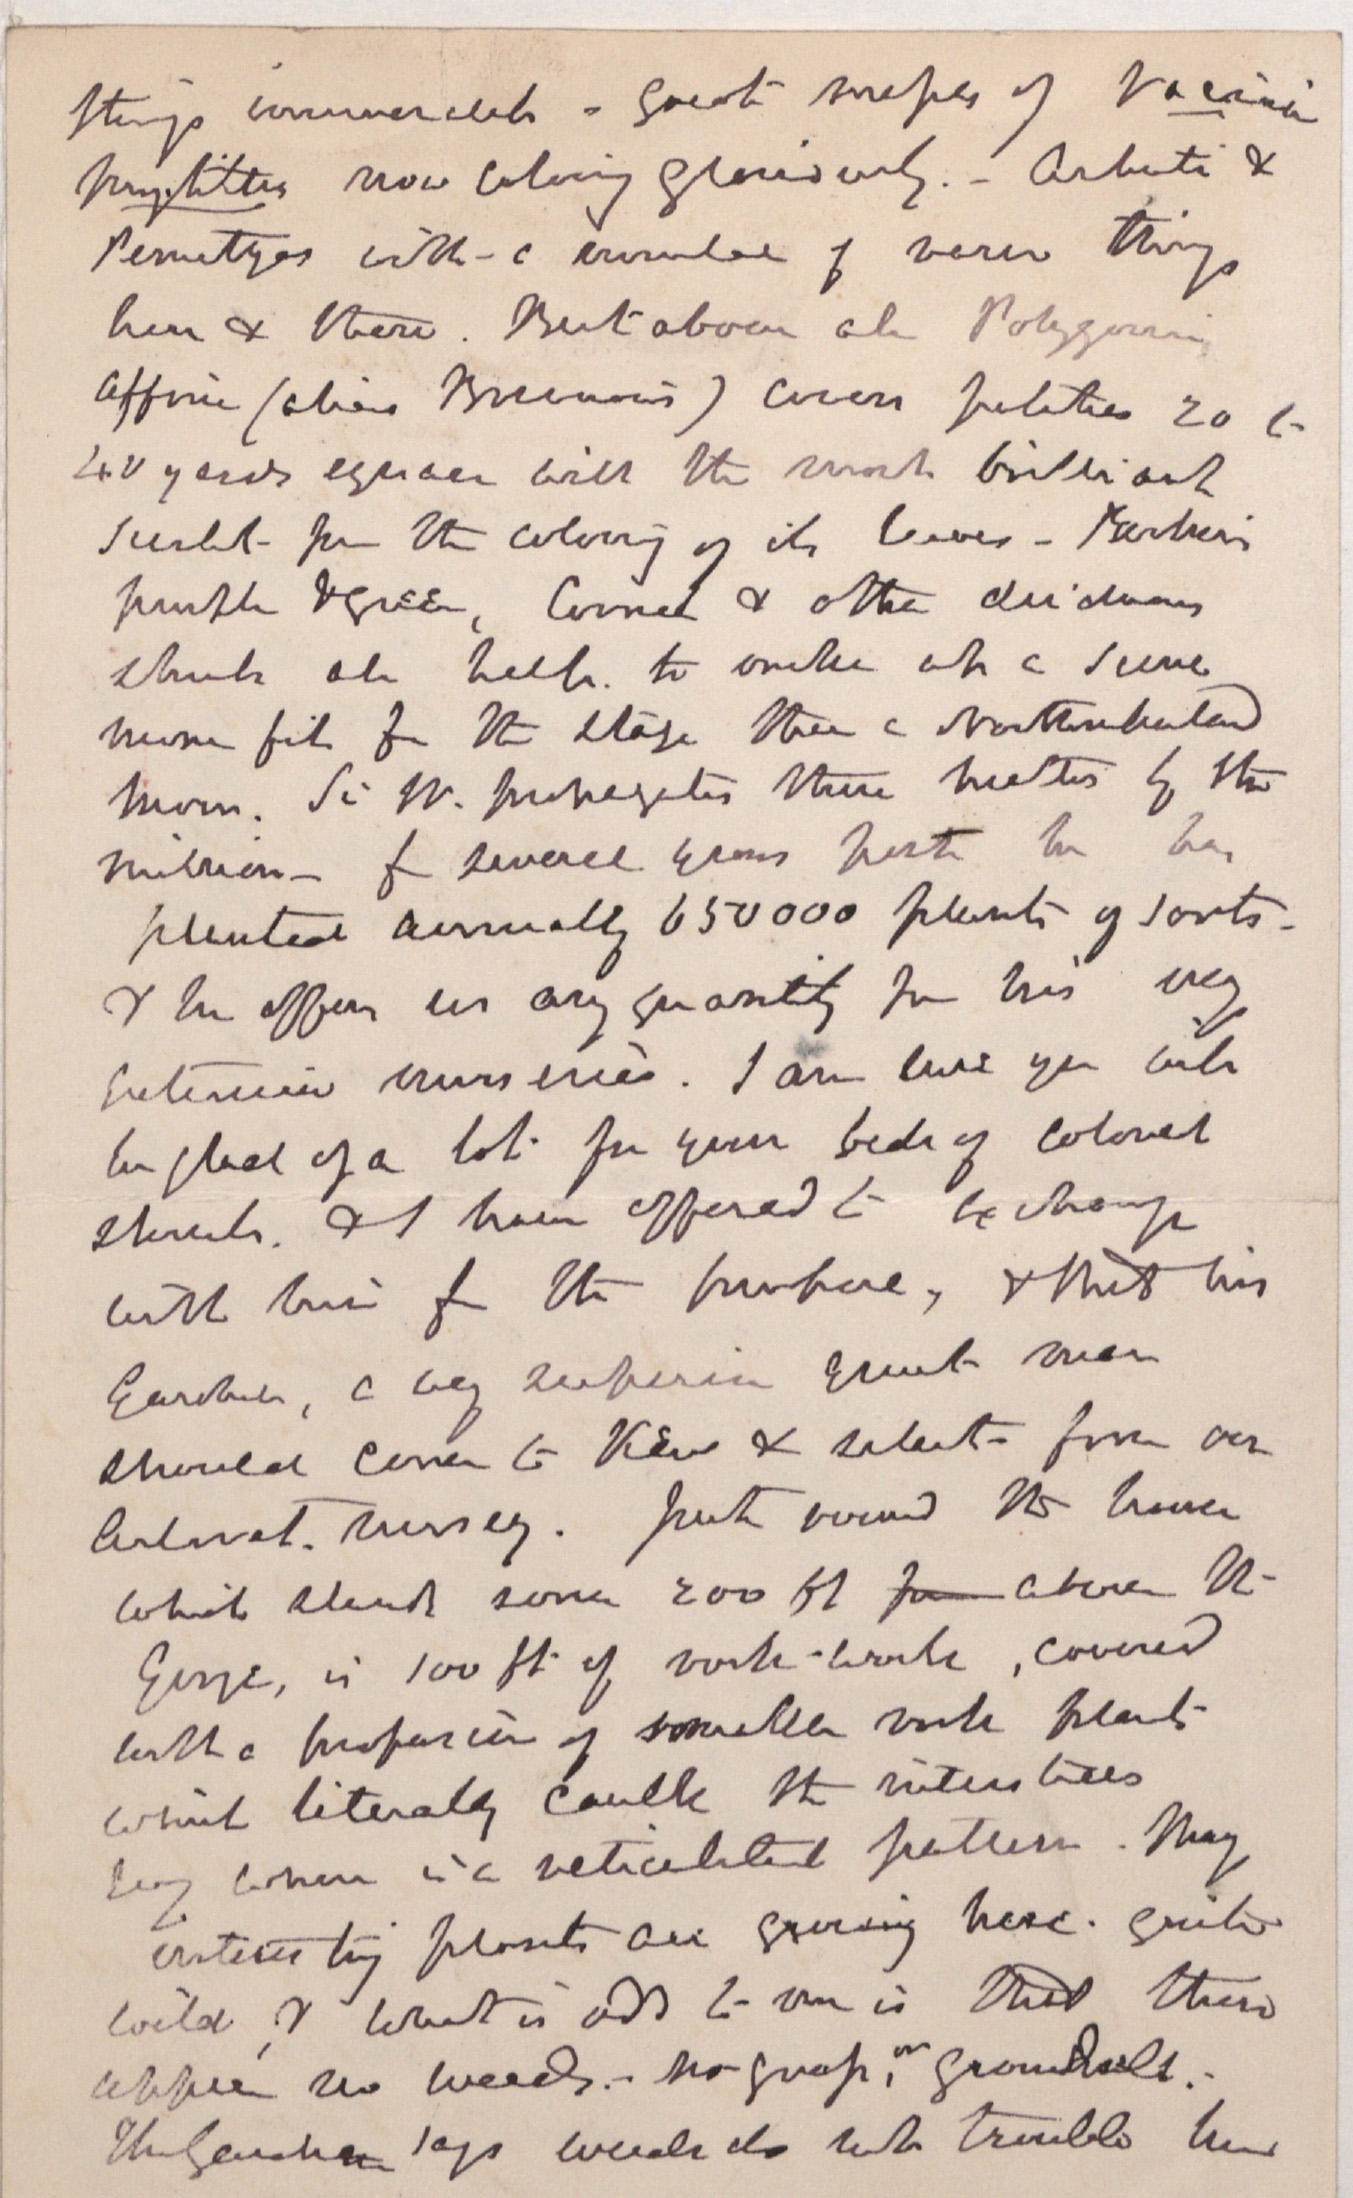 things innumerable - great swafes of Vaccinia
myrtillus now coloring gloriously. - Arbuti &
Pernettyas with a number of rarer things
here & there. But above all Polygonum
affine (alias Brunonis) covers patches 20 to
40 yards square with the most brilliant
scarlet from the coloring of its leaves - Berberis
purple & green, Cornel & other deciduous
shrubs all help to make up a scene
more fit for the stage than a Northumberland
moor. Sir W. propagates these heaths by the
million - for several years past he has
planted annually 650000 plants of sorts -
& he offers us any quantity from his very
extensive nurseries. I am sure you will
be glad of a lot for your beds of colored
shrubs. & I have offered to exchange
with him for the purpose, & that his
Gardener, a very superior quiet man
should come to Kew & select from our
Arboret. nursery. Just round the house
which stands some 200 ft above the
Gorge, is 100 ft of rock-work, covered
with a profusion of smaller rock plants
which literally caulk the interstices
every where in a reticulated pattern. Many
interesting plants are growing here quite
wild, & what is odd to me is that there
appear no weeds. - no grass, or groundsell. -
The Gardener says weeds do not trouble him